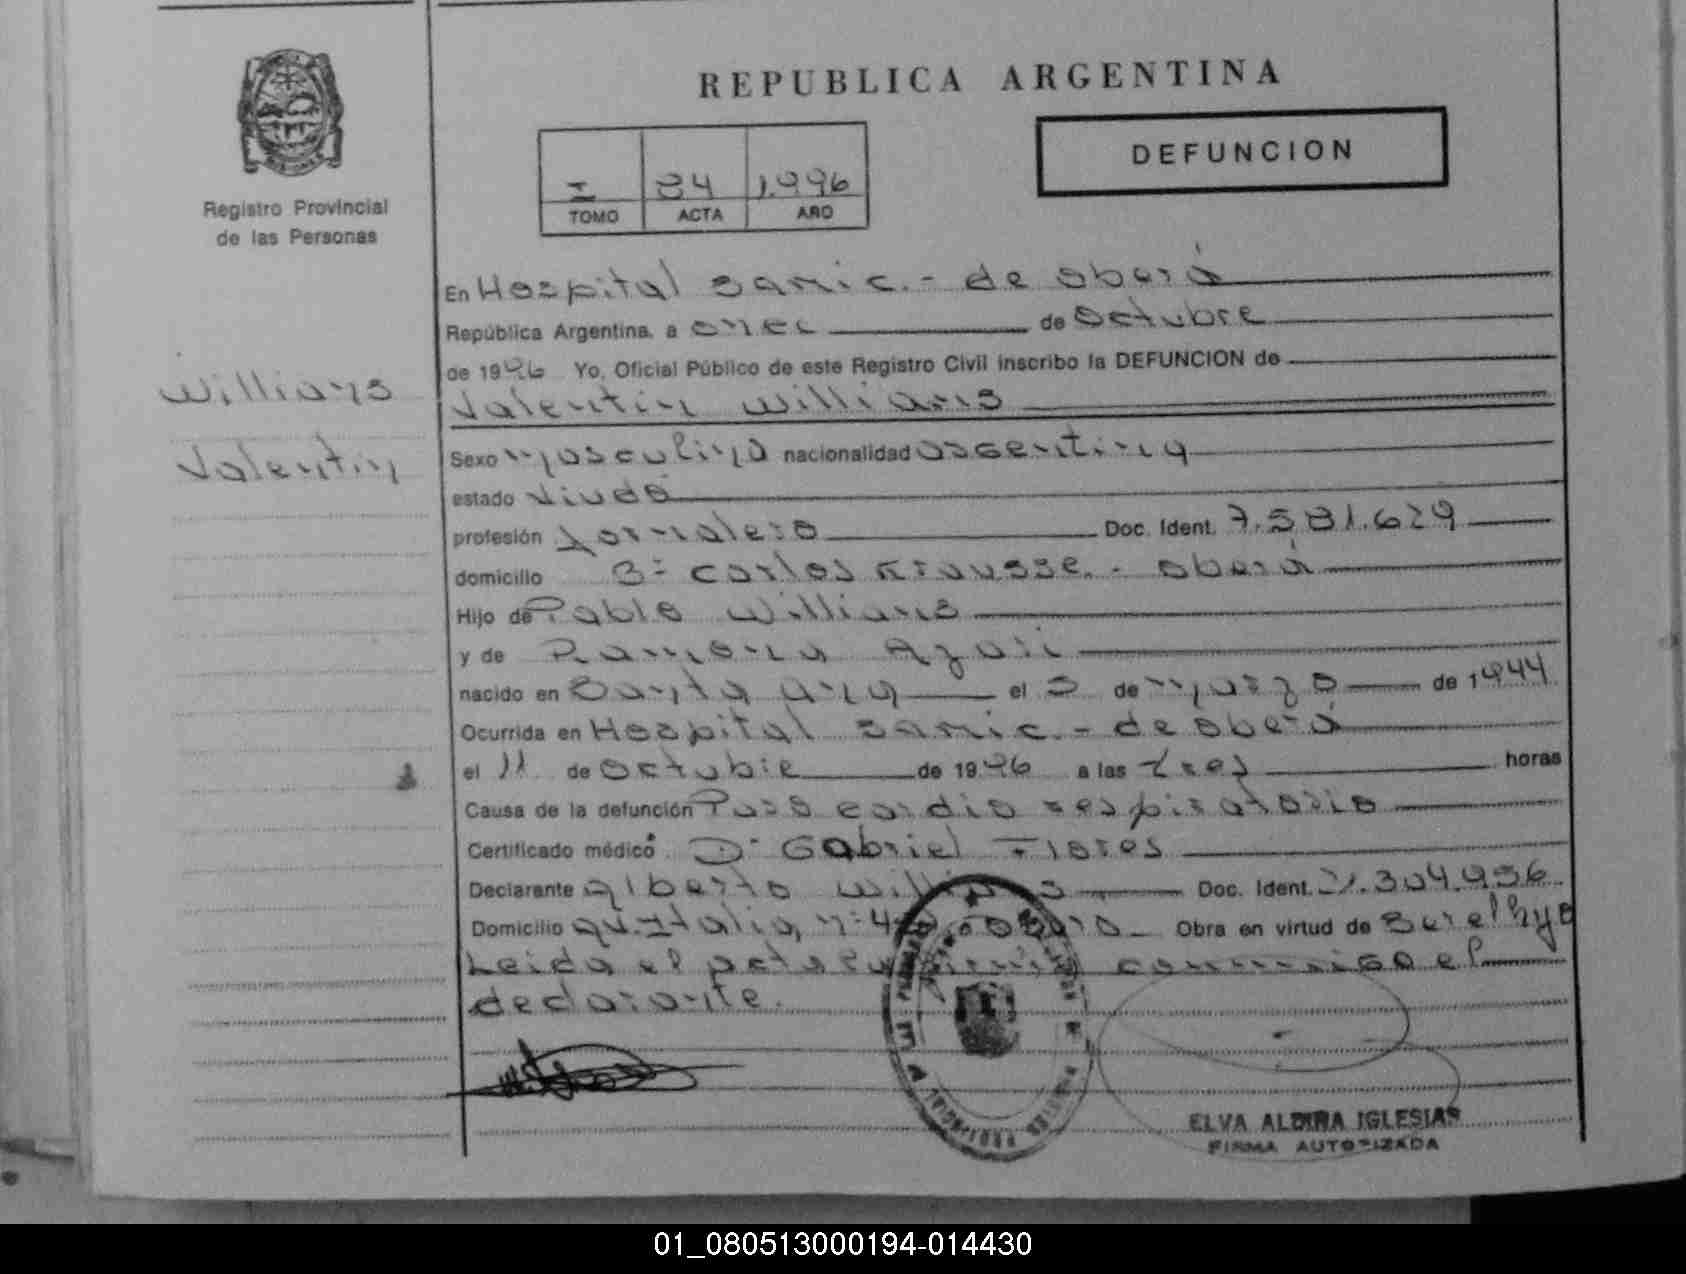 REPUBLICA ARGENTINA
DEFUNCION
I 84 1.996
TOMO ACTA AÑO
Registro Provincial
de las Personas
Willians
Valentin
En Hospital Samic.- de oberá
República Argentina, a once de octubre
de 1996 Yo, Oficial Público de este Registro Civil inscribo la DEFUNCION de
Valentin Willians
Sexo masculino nacionalidad argentina
estado viudo
profesión Jornalero Doc. Ident. 7.581.629
domicilio Bº Carlos Krausse.- oberá
Hijo de Pablo Willians
y de Ramona
nacido en Santa ana el de marzo de 1944
Ocurrida en Hospital Samic.- de oberá
el 11 de octubre de 1996 a las tres horas
Causa de la defunción Paro cardio respiratorio
Certificado médico Dr Gabriel Flores
Declarante Alberto Willians Doc. Ident. 21.304.956
Domicilio av. Italia nº Obra en virtud de
Leida el acta conmigo el
declarante.
ELVA ALBIRA IGLESIAS
FIRMA AUTORIZADA
01_080513000194-014430